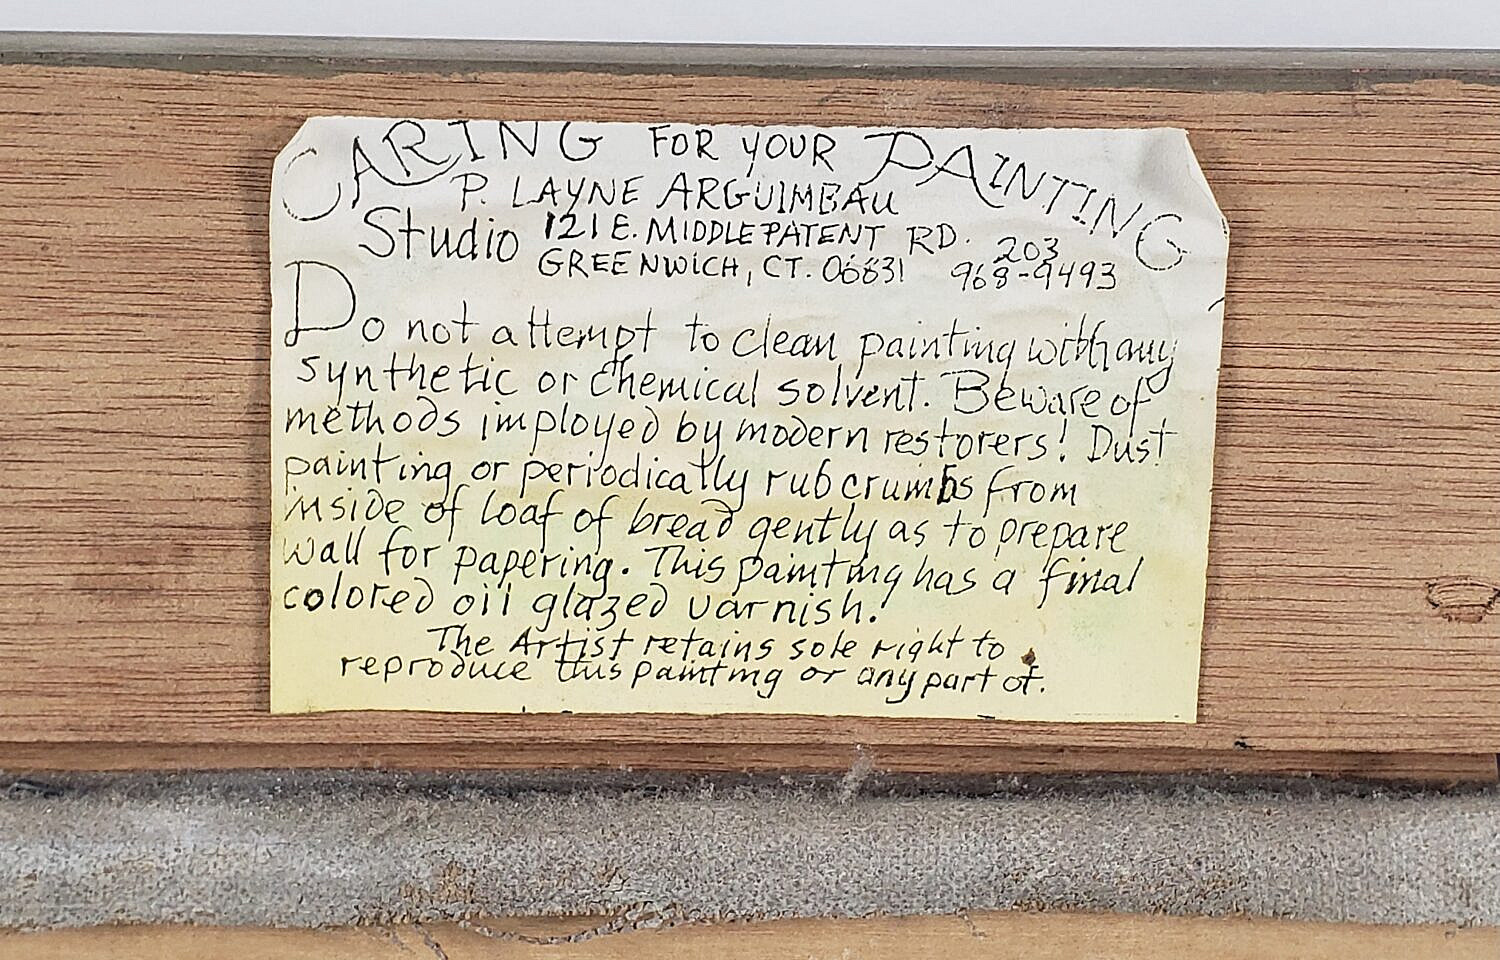 CARING FOR YOUR PAINTING
P. LAYNE ARGUIMBAU
Studio 121 E. MIDDLE PATENT RD. 203
GREENWICH, CT. 06631 968-9493
Do not attempt to clean painting with any
synthetic or chemical solvent. Beware of
methods imployed by modern restorers! Dust
painting or periodically rub crumbs from
inside of loaf of bread gently as to prepare
wall for papering. This painting has a final
colored oil glazed varnish.
The Artist retains sole right to
reproduce this painting or any part of.